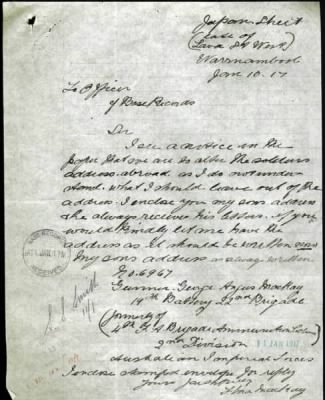 Japan Street
(care of
Lava St West)
Warrnambool
Jan 10. 17
To Officer
of Base Records
Sir
I see a notice in the
paper that we are to alter the soldiers
address abroad as I do not under
stand what I should leave out of the
address I enclose you my sons address
he always receives his letters. if you
would kindly let me have the
address as it should be written
My sons address as always written
No. 6967
Gunner George Angus Mackay
Battery 22nd Brigade
(formerly of
4th F A Brigade Ammunition Col)
2nd Division
Australian Imperial Forces
I enclose stamped envelope for reply
yours faithfully
Mackay
15 JAN 1917